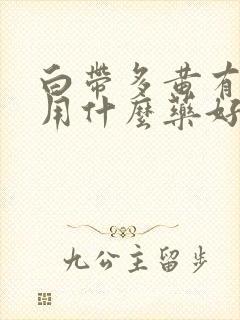 白帶多黄有
用什麼藥好
九公主留步